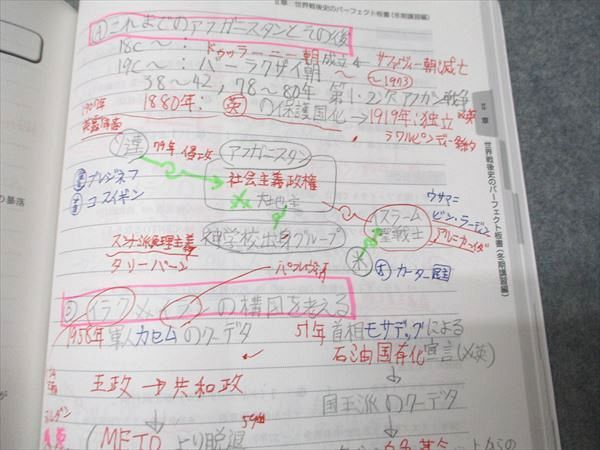 II章 世界戦後史のパーフェクト板書(冬期講習編)
④これまでのアフガニスタンとその後
18C～：ドゥッラーニー朝成立←サファヴィー朝滅亡
19C～：バーラクザイ朝～(～1973)
38～42，78～80年 第1・2次アフガン戦争
1907年
英露協商
1880年：英の保護国化→1919年：独立
ラワルピンディー条約
II章
世界戦後史のパーフェクト板書(冬期講習編)
ソ連
79年 侵攻
アフガニスタン
社会主義政権
大地主
ブレジネフ
コスイギン
イスラーム
聖戦士
ウサマ=
ビン・ラーディン
アル=カーイダ
スンナ派原理主義
ターリバーン
神学校出身グループ
米
カーター民主
パフレヴィー
⑤イラク×イランの構図を考える
1958年 軍人カセムのクーデタ
51年 首相モサデッグによる
石油国有化宣言(×英)
王政→共和政
国王派のクーデタ
METOより脱退
の暴落